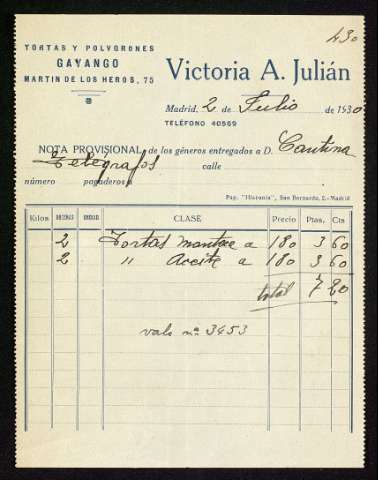 430
TORTAS Y POLVORONES
GAYANGO
MARTIN DE LOS HEROS, 75
Victoria A. Julián
Madrid, 2 de Julio de 1930
TELÉFONO 40569
NOTA PROVISIONAL de los géneros entregados a D. Cantina
Telégrafos calle
número pagaderos a
Pap. "Hispania", San Bernardo, 2.-Madrid
Kilos CLASE Precio Ptas. Cts
2 Tortas manteca a 180 3 60
2 " Aceite a 180 3 60
total 7 20
vale nº 3453